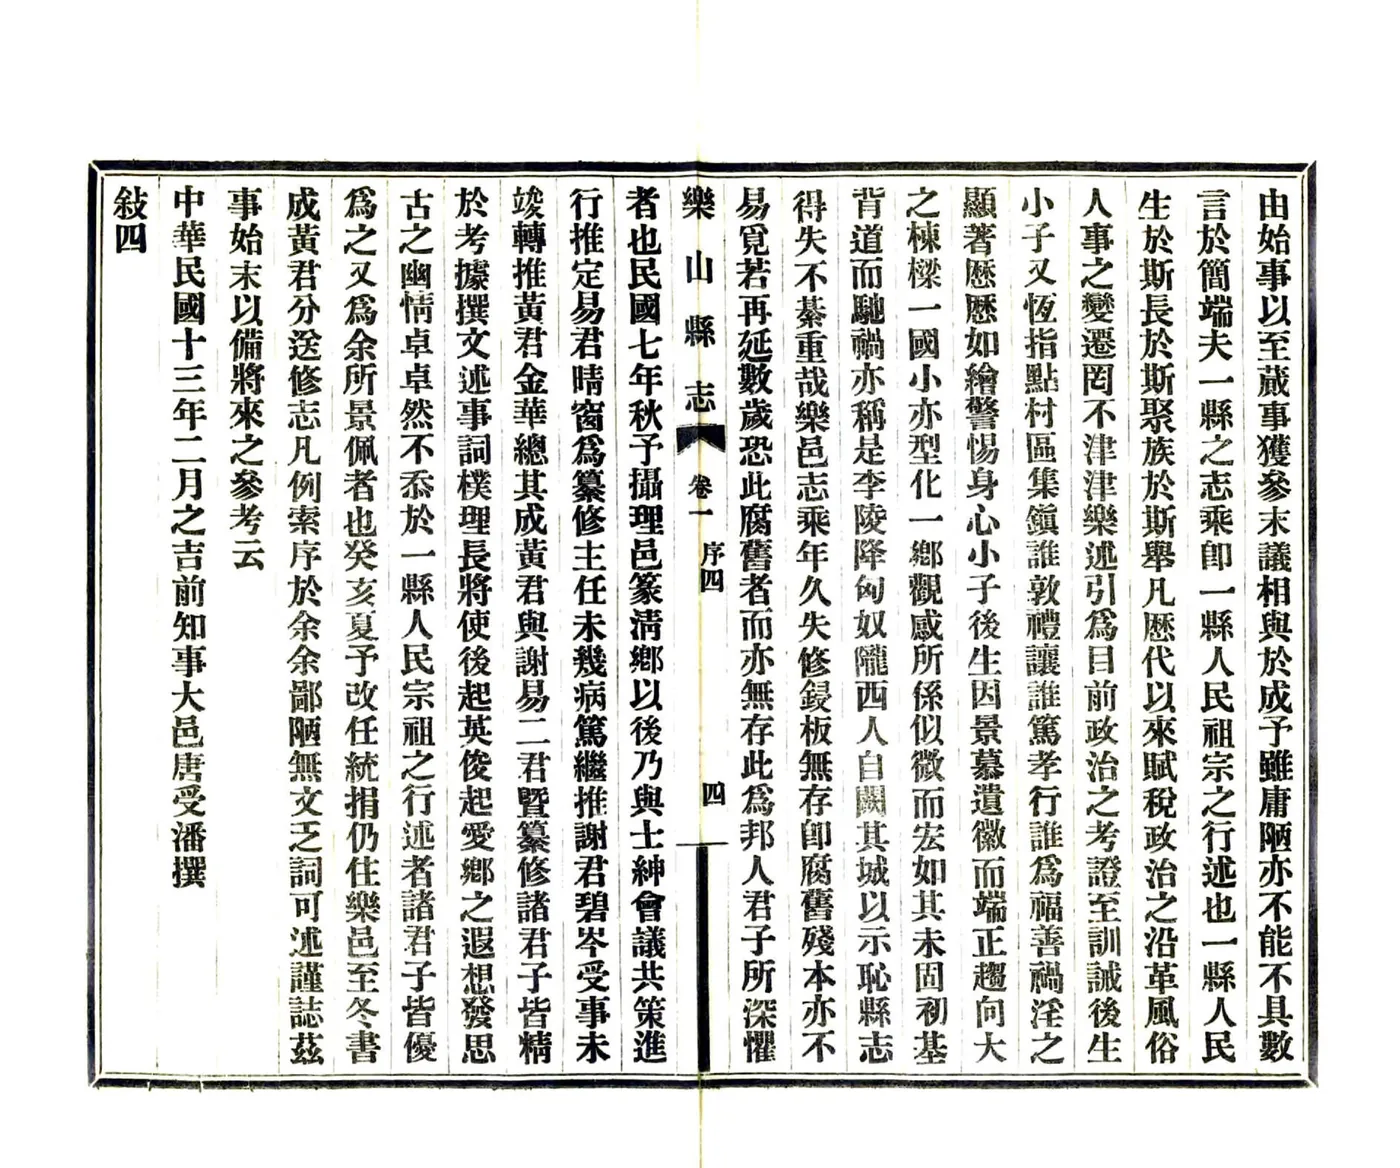 由始事以至蕆事獲參末議相與於成予雖庸陋亦不能不具數
言於簡端夫一縣之志乘卽一縣人民祖宗之行述也一縣人民
生於斯長於斯聚族於斯舉凡歷代以來賦稅政治之沿革風俗
人事之變遷罔不津津樂述引爲目前政治之考證至訓誡後生
小子又恆指點村區集鎭誰敦禮讓誰篤孝行誰爲福善禍淫之
顯著歷歷如繪警惕身心小子後生因景慕遺徽而端正趨向大
之棟樑一國小亦型化一鄉觀感所係似微而宏如其未固初基
背道而馳禍亦稱是李陵降匈奴隴西人自闢其城以示恥縣志
得失不綦重哉樂邑志乘年久失修鋟板無存卽腐舊殘本亦不
易覓若再延數歲恐此腐舊者而亦無存此爲邦人君子所深懼
樂山縣志 卷一 序四 四
者也民國七年秋予攝理邑篆淸鄉以後乃與士紳會議共策進
行推定易君晴窗爲纂修主任未幾病篤繼推謝君碧岑受事未
竣轉推黃君金華總其成黃君與謝易二君曁纂修諸君子皆精
於考據撰文述事詞樸理長將使後起英俊起愛鄉之遐想發思
古之幽情卓卓然不忝於一縣人民宗祖之行述者諸君子皆優
爲之又爲余所景佩者也癸亥夏予改任統捐仍住樂邑至冬書
成黃君分送修志凡例索序於余余鄙陋無文乏詞可述謹誌茲
事始末以備將來之參考云
中華民國十三年二月之吉前知事大邑唐受潘撰
敍四